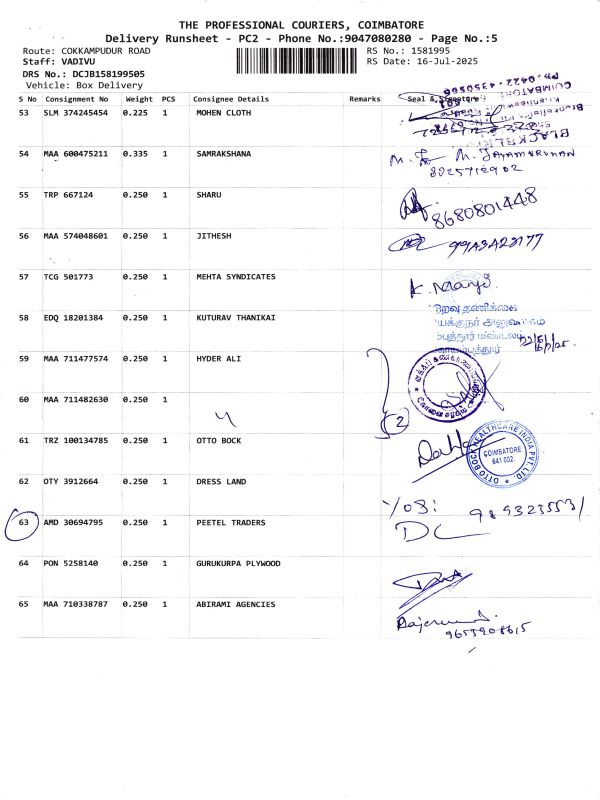 THE PROFESSIONAL COURIERS, COIMBATORE
Delivery Runsheet - PC2 - Phone No.:9047080280 - Page No.:5
Route: COKKAMPUDUR ROAD
RS No.: 1581995
Staff: VADIVU
RS Date: 16-Jul-2025
DRS No.: DCJB158199505
Vehicle: Box Delivery
S No Consignment No Weight PCS Consignee Details Remarks Seal & Signature
53 SLM 374245454 0.225 1 MOHEN CLOTH
54 MAA 600475211 0.335 1 SAMRAKSHANA
M. JAYAMURUHAN
8025712902
55 TRP 667124 0.250 1 SHARU
8680801448
56 MAA 574048601 0.250 1 JITHESH
57 TCG 501773 0.250 1 MEHTA SYNDICATES
58 EDQ 18201384 0.250 1 KUTURAV THANIKAI
59 MAA 711477574 0.250 1 HYDER ALI
60 MAA 711482630 0.250 1
2
61 TRZ 100134785 0.250 1 OTTO BOCK
OTTO BOCK HEALTHCARE INDIA PVT. LTD.
COIMBATORE
641 002.
62 OTY 3912664 0.250 1 DRESS LAND
63 AMD 30694795 0.250 1 PEETEL TRADERS
DC
64 PON 5258140 0.250 1 GURUKURPA PLYWOOD
65 MAA 710338787 0.250 1 ABIRAMI AGENCIES